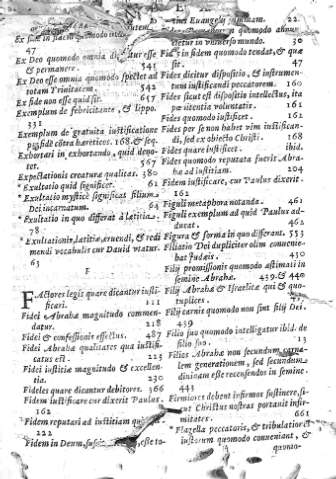 Ex fide in
47
Ex Deo quomodo omnia dicatur esse
& permanere. 541
Ex Deo esse omnia quomodo spectet ad
totam Trinitatem. 542
Ex fide non esse quid sit. 657
Exemplum de febricitante, & lippo.
331
Exemplum de gratuita iustificatione
posidēt cōtra hæreticos. 168. & seq.
Exhortari in exhortando, quid deno-
tet. 567
Expectationis creatura qualitas. 380
Exultatio quid significet. 61
Exultatio mysticè significat filium
Dei incarnatum. 64
Exultatio in quo differat à lætitia.
78
Exultationis, lætitiæ, eruendi, & redi
mendi vocabulis cur Dauid vtatur.
63
F
FActores legis quare dicantur iusti-
ficari. 111
Fidei Abrahæ magnitudo commen-
datur. 218
Fidei & confessionis effectus. 487
Fidei Abrahæ qualitates quæ iustifi-
catus est. 223
Fidei iustitiæ magnitudo & excellen-
tia. 230
Fideles quare dicantur debitores. 366
Fidem iustificare cur dixerit Paulus.
162
Fidem reputari ad iustitiam
222
Fidem in Deum, esse to-
tius Euangelij summam. 22
quomodo annun
cietur in vniuerso mundo. 30
Fides in fidem quomodo tendat, & quæ
sit. 47
Fides dicitur dispositio, & instrumen-
tum iustificandi peccatorem. 160
Fides sicut est dispositio intellectus, ita
pœnitentia voluntatis. 161
Fides quomodo iustificet. 161
Fides per se non habet vim iustifican-
di, sed ex obiecto Christi. 168
Fides quare iustificet. ibid.
Fides quomodo reputata fuerit Abra-
hæ ad iustitiam. 204
Fidem iustificare, cur Paulus dixerit.
162
Figuli metaphora notanda. 461
Figuli exemplum ad quid Paulus ad-
ducat. 462
Figura & forma in quo differant. 553
Filiatio Dei dupliciter olim conuenie-
bat Iudæis. 430
Filij promissionis quomodo æstimati in
semine Abrahæ. 439. & 440
Filij Abrahæ & Israelitæ qui & quo-
tuplices.
Filij carnis quomodo non sint filij Dei.
439
Filio suo quomodo intelligatur ibid. de
filio suo. 13
Filios Abrahæ non secundum carna-
lem generationem, sed secundum
esse recensendos in semine.
441
Firmiores debent infirmos sustinere, si-
cut Christus nostras portauit infir-
mitates. 661
Flagella peccatoris, & tribulationes
iustorum quomodo conueniant, &
quomo-